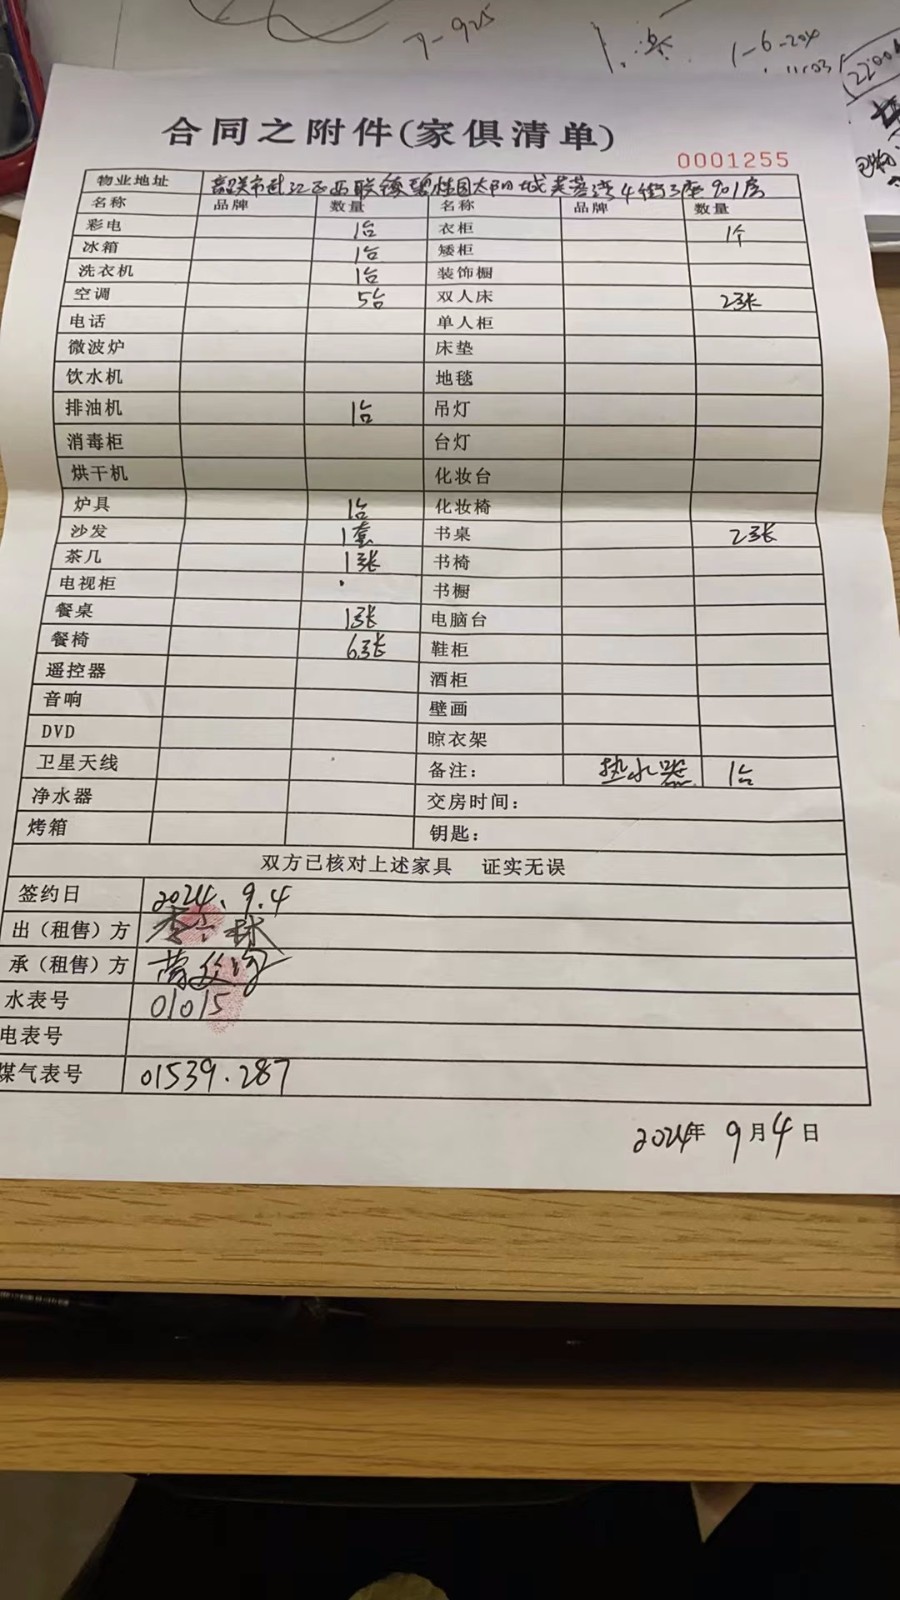 7-925
1-6
合同之附件(家俱清单)
0001255
物业地址 韶关市武江区西联镇碧桂园太阳城芙蓉湾4街3座901房
名称 品牌 数量 名称 品牌 数量
彩电 1台 衣柜 1个
冰箱 1台 矮柜
洗衣机 1台 装饰橱
空调 5台 双人床 2张
电话 单人柜
微波炉 床垫
饮水机 地毯
排油机 1台 吊灯
消毒柜 台灯
烘干机 化妆台
炉具 1台 化妆椅
沙发 1套 书桌 2张
茶几 1张 书椅
电视柜 书橱
餐桌 1张 电脑台
餐椅 6张 鞋柜
遥控器 酒柜
音响 壁画
DVD 晾衣架
卫星天线 备注： 热水器 1台
净水器 交房时间：
烤箱 钥匙：
双方已核对上述家具 证实无误
签约日 2024.9.4
出（租售）方
承（租售）方
水表号 01015
电表号
煤气表号 01539.287
2024年 9月4日